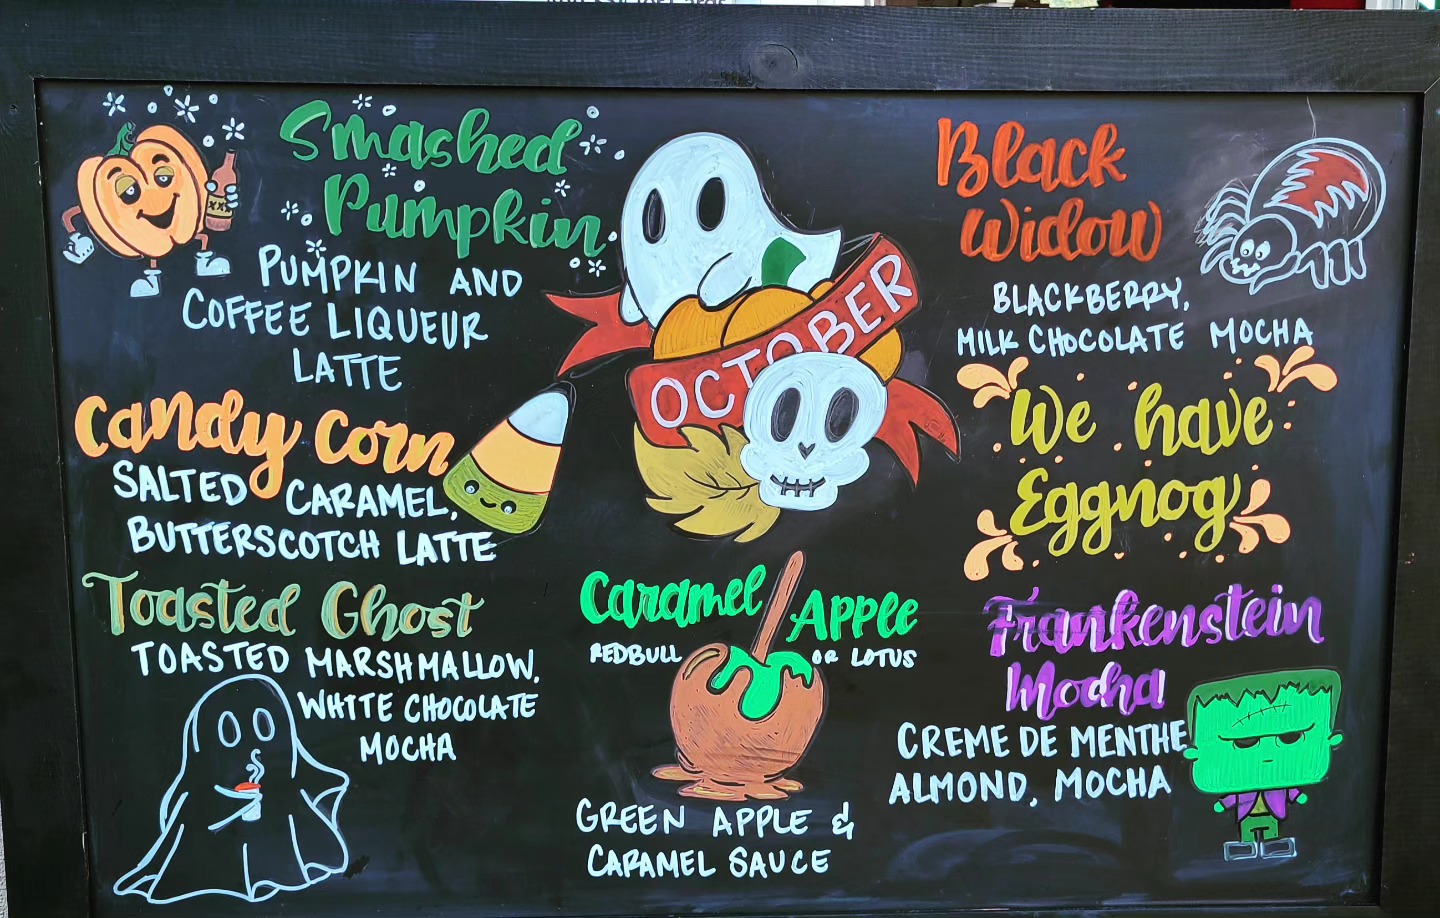 Smashed
Pumpkin
PUMPKIN AND
COFFEE LIQUEUR
LATTE
Candy Corn
SALTED CARAMEL,
BUTTERSCOTCH LATTE
Toasted Ghost
TOASTED MARSHMALLOW,
WHITE CHOCOLATE
MOCHA
OCTOBER
Caramel Apple
REDBULL OR LOTUS
GREEN APPLE &
CARAMEL SAUCE
Black
Widow
BLACKBERRY,
MILK CHOCOLATE MOCHA
We have
Eggnog
Frankenstein
Mocha
CREME DE MENTHE
ALMOND, MOCHA
XX